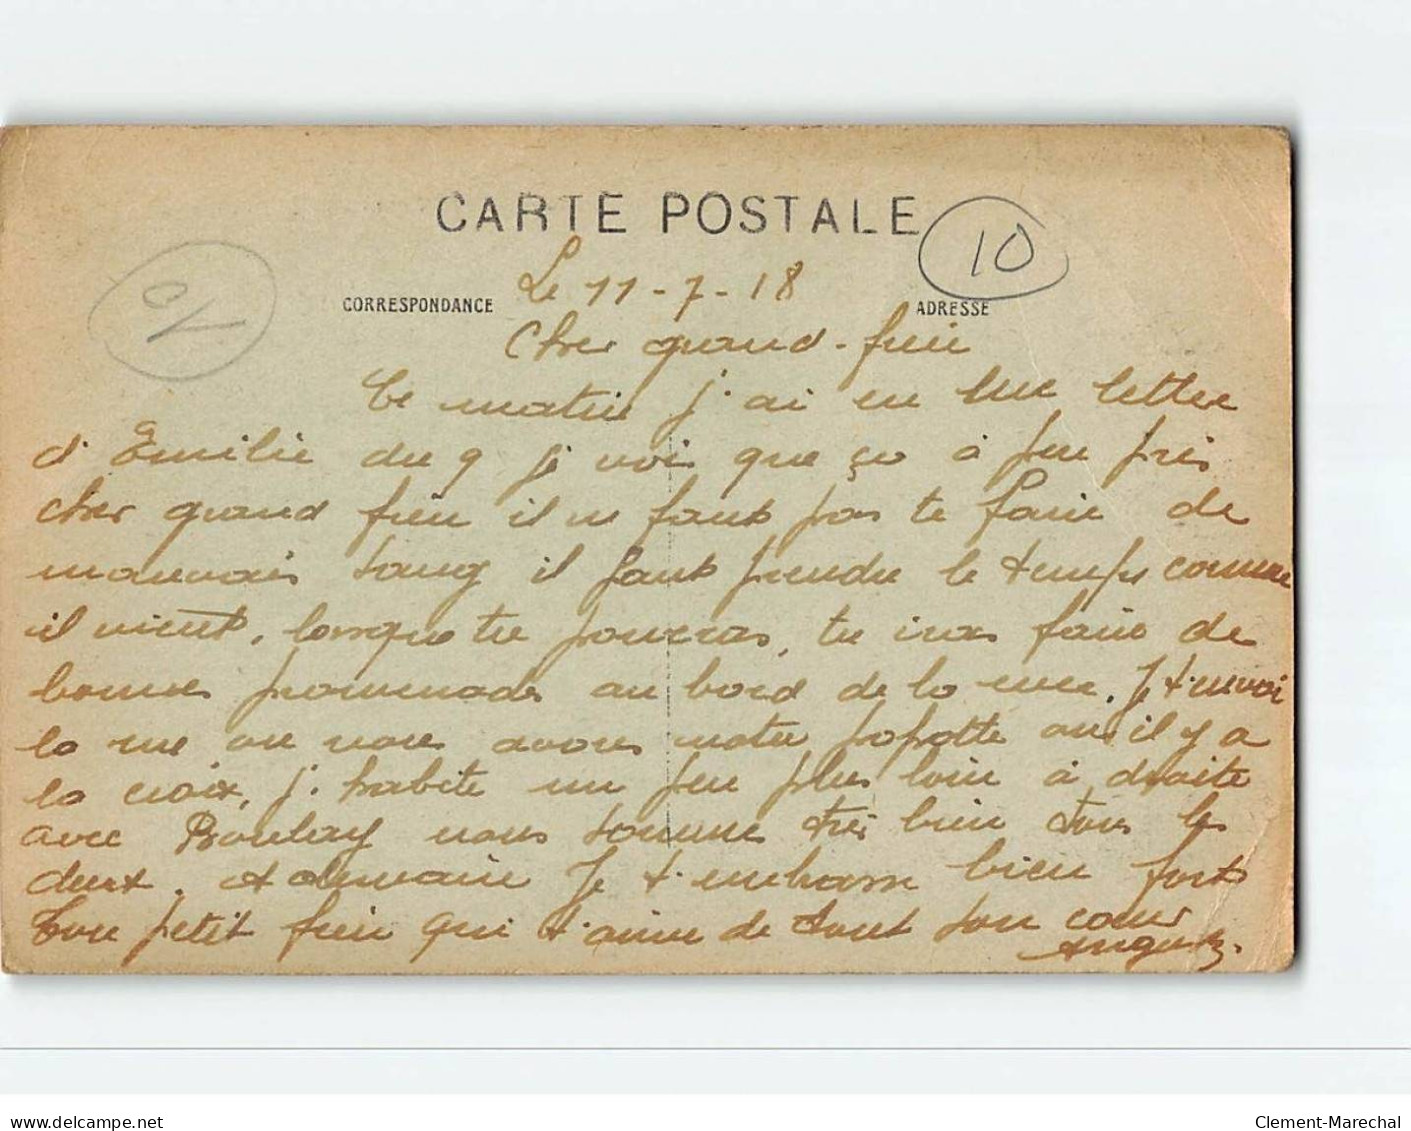 CARTE POSTALE
10
10
CORRESPONDANCE
ADRESSE
Le 11-7-18
Cher grand-frère
Ce matin j'ai eu une lettre
d'Emilie du 9 je vois que ça à peu près
cher grand frère il ne faut pas te faire de
mauvais sang il faut prendre le temps comme
il vient, lorsque tu pourras, tu iras faire de
bonnes promenades au bord de la mer. Je t'envoi
la rue ou nous avons notre popotte ou il y a
la croix, j'habite un peu plus loin à droite
avec Boulay nous somme très bien tous les
deux. Je t'embrasse bien fort
Ton petit frère qui t'aime de tout son cœur
delcampe.net
Clement-Marechal